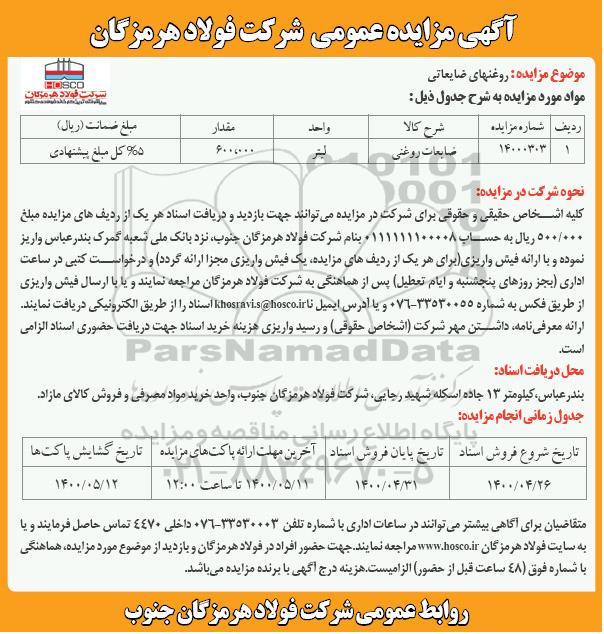 آگهی مزایده عمومی شرکت فولاد هرمزگان
HOSCO
شرکت فولاد هرمزگان
موضوع مزایده : روغنهای ضایعاتی
مواد مورد مزایده به شرح جدول ذیل :
ردیف شماره مزایده شرح کالا واحد مقدار مبلغ ضمانت (ریال)
۱ ۱۴۰۰۰۳۰۳ ضایعات روغنی لیتر ۶۰۰،۰۰۰ ۵% کل مبلغ پیشنهادی
نحوه شرکت در مزایده:
کلیه اشخاص حقیقی و حقوقی برای شرکت در مزایده می‌توانند جهت بازدید و دریافت اسناد هر یک از ردیف های مزایده مبلغ
۵۰۰/۰۰۰ ریال به حساب ۰۱۱۱۱۱۱۱۰۰۰۰۸ بنام شرکت فولاد هرمزگان جنوب، نزد بانک ملی شعبه گمرک بندرعباس واریز
نموده و با ارائه فیش واریزی(برای هر یک از ردیف های مزایده، یک فیش واریزی مجزا ارائه گردد) و درخواست کتبی در ساعت
اداری (بجز روزهای پنجشنبه و ایام تعطیل) پس از هماهنگی به شرکت فولاد هرمزگان مراجعه نمایند و یا با ارسال فیش واریزی
از طریق فکس به شماره ۳۳۵۳۰۰۵۵-۰۷۶ و یا آدرس ایمیل khosravi.s@hosco.ir اسناد را از طریق الکترونیکی دریافت نمایند.
ارائه معرفی‌نامه، داشتن مهر شرکت (اشخاص حقوقی) و رسید واریزی هزینه خرید اسناد جهت دریافت حضوری اسناد الزامی
است.
ParsNamadData
محل دریافت اسناد:
بندرعباس،کیلومتر ۱۳ جاده اسکله شهید رجایی، شرکت فولاد هرمزگان جنوب، واحد خرید مواد مصرفی و فروش کالای مازاد.
جدول زمانی انجام مزایده:
پایگاه اطلاع رسانی مناقصه و مزایده
تاریخ شروع فروش اسناد تاریخ پایان فروش اسناد آخرین مهلت ارائه پاکت‌های مزایده تاریخ گشایش پاکت‌ها
۱۴۰۰/۰۴/۲۶ ۱۴۰۰/۰۴/۳۱ ۱۴۰۰/۰۵/۱۱ تا ساعت ۱۲:۰۰ ۱۴۰۰/۰۵/۱۲
۰۲۱-۸۸۳۴۹۶۷۰-۵
متقاضیان برای آگاهی بیشتر می‌توانند در ساعات اداری با شماره تلفن ۳۳۵۳۰۰۰۳-۰۷۶ داخلی ۴۴۷۰ تماس حاصل فرمایند و یا
به سایت فولاد هرمزگان www.hosco.ir مراجعه نمایند.جهت حضور افراد در فولاد هرمزگان و بازدید از موضوع مورد مزایده، هماهنگی
با شماره فوق (۴۸ ساعت قبل از حضور) الزامیست.هزینه درج آگهی با برنده مزایده می‌باشد.
روابط عمومی شرکت فولاد هرمزگان جنوب